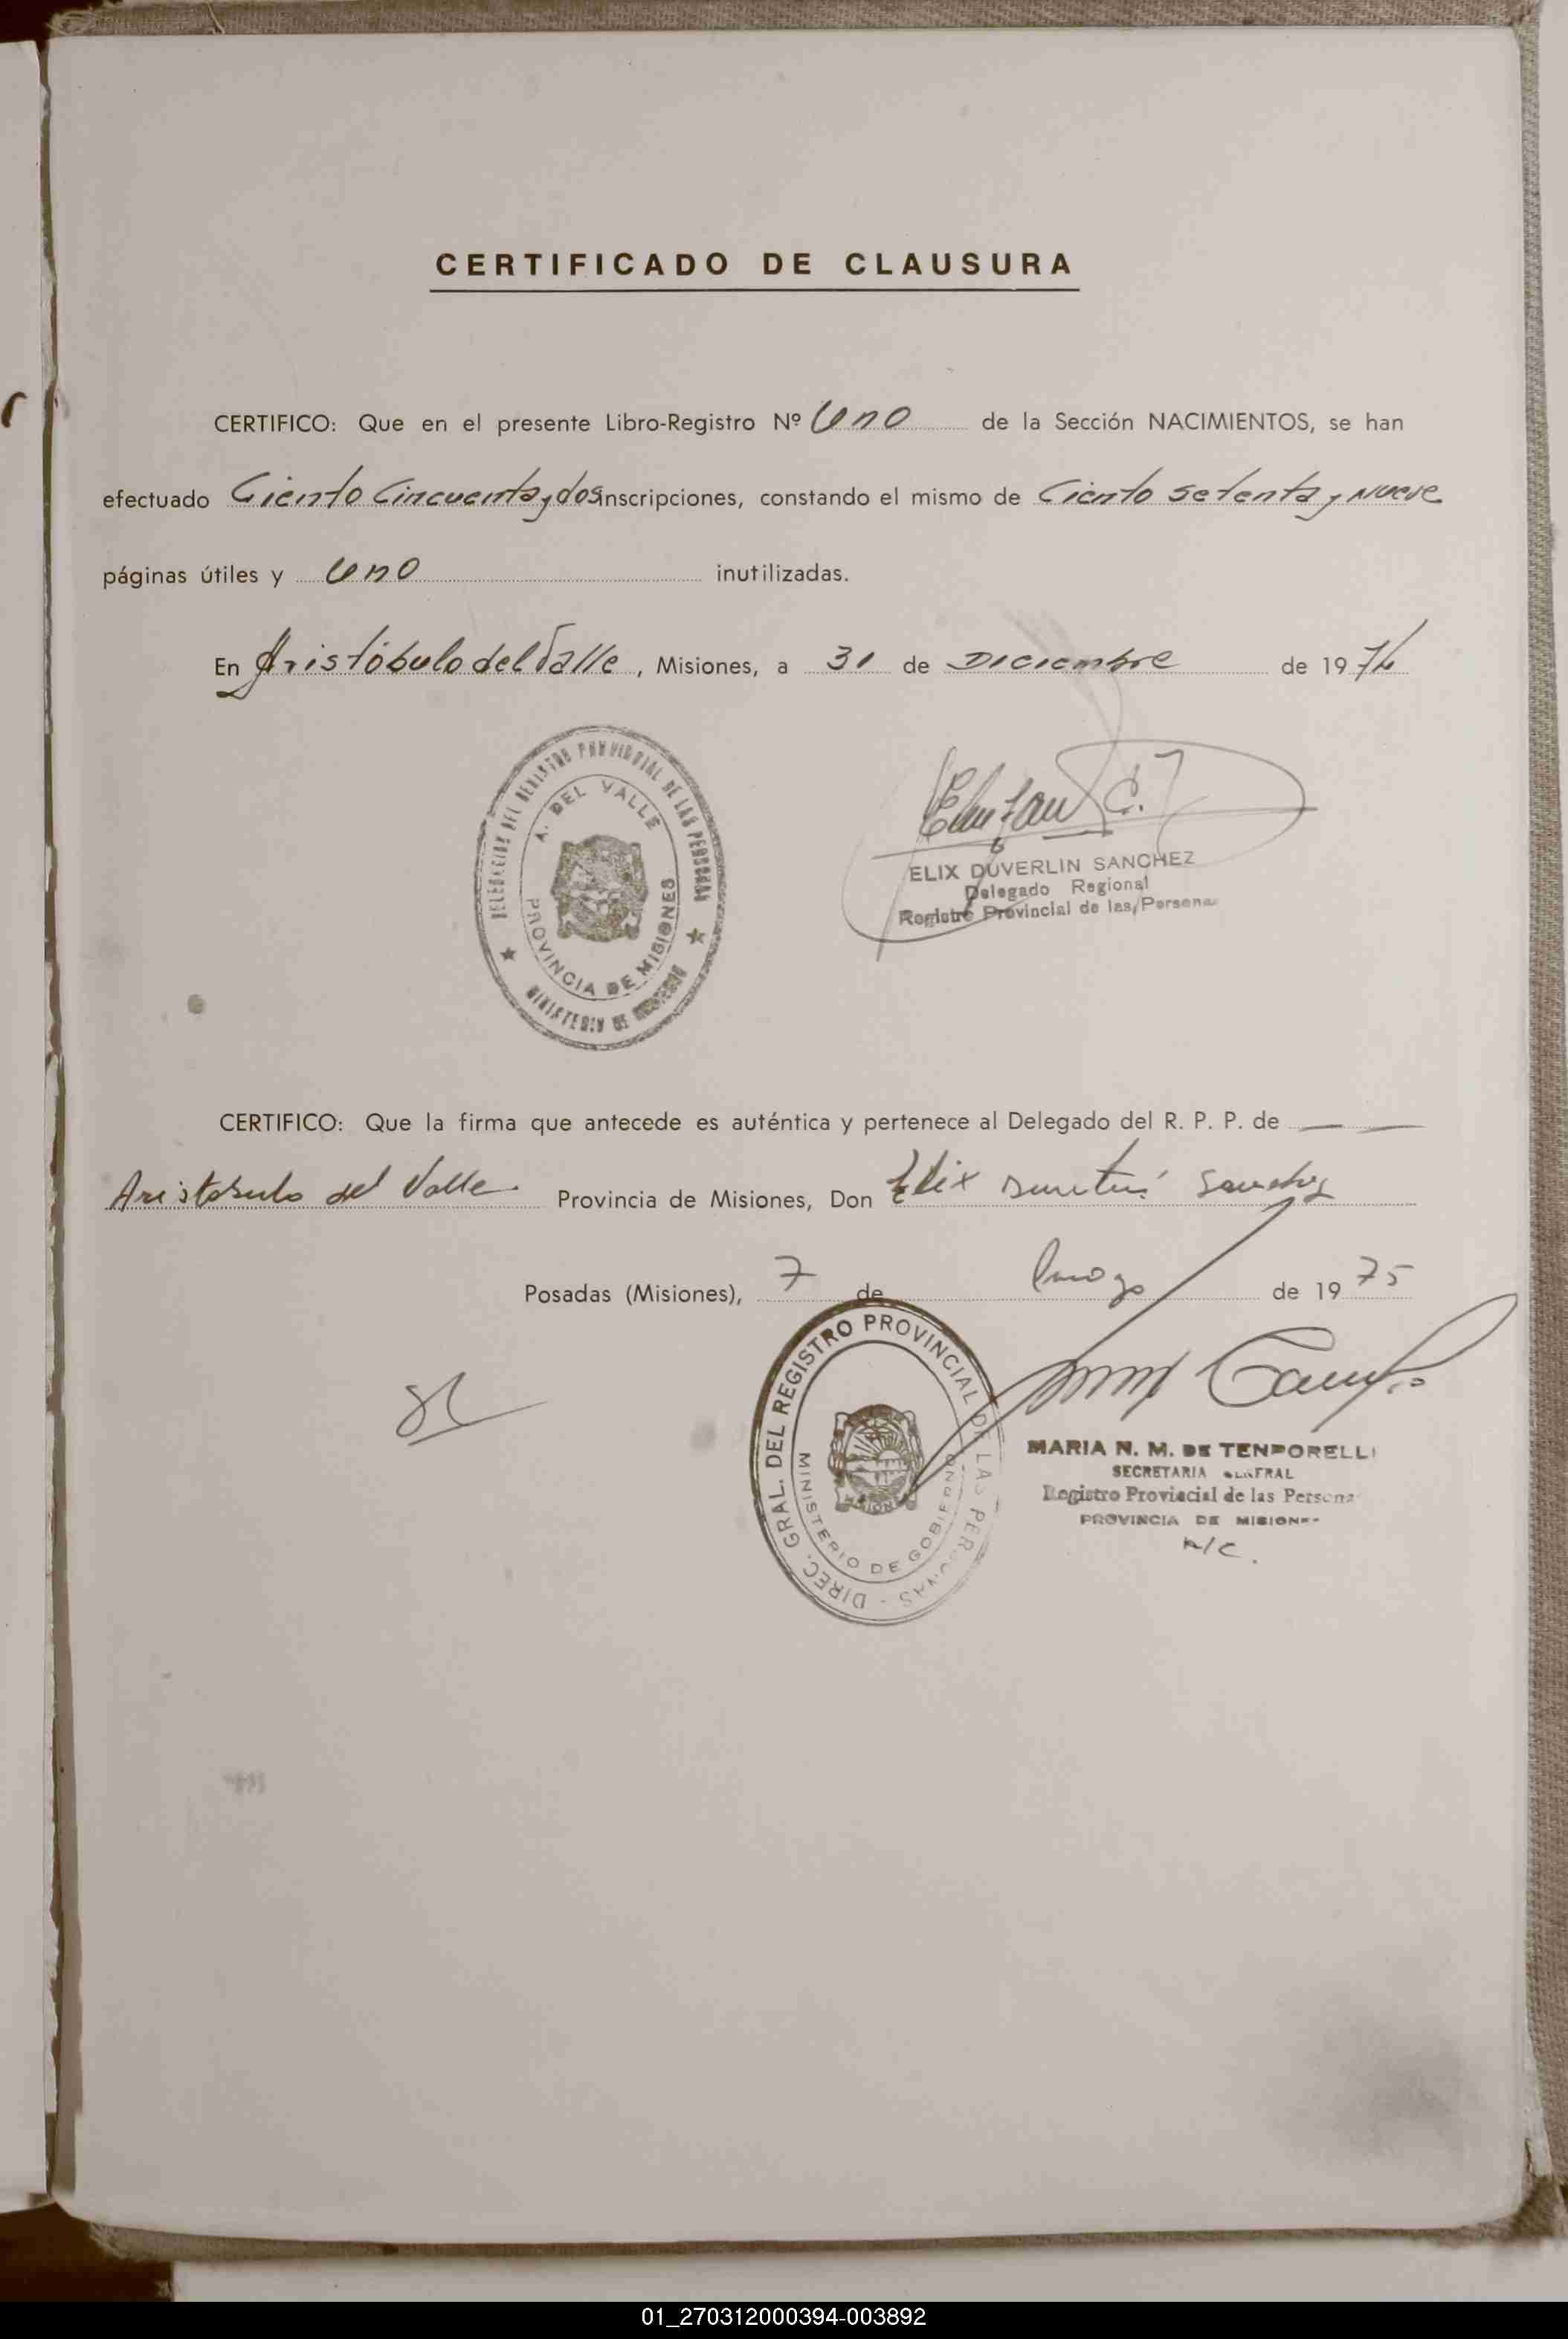 CERTIFICADO DE CLAUSURA
CERTIFICO: Que en el presente Libro-Registro Nº Uno de la Sección NACIMIENTOS, se han
efectuado Ciento Cincuenta y dos inscripciones, constando el mismo de Ciento setenta y nueve
páginas útiles y Uno inutilizadas.
En Aristóbulo del Valle, Misiones, a 31 de Diciembre de 1974
DELEGACION DEL REGISTRO PROVINCIAL DE LAS PERSONAS
A. DEL VALLE
PROVINCIA DE MISIONES
MINISTERIO DE
ELIX DUVERLIN SANCHEZ
Delegado Regional
Registro Provincial de las Persona
CERTIFICO: Que la firma que antecede es auténtica y pertenece al Delegado del R. P. P. de
Aristobulo del Valle Provincia de Misiones, Don Elix Sanchez
Posadas (Misiones), 7 de de 1975
DIREC. GRAL. DEL REGISTRO PROVINCIAL DE LAS PERSONAS -
MINISTERIO DE GOBIERNO
MARIA N. M. DE TEMPORELLI
SECRETARIA GENERAL
Registro Provincial de las Persona
PROVINCIA DE MISIONES
A/C.
01_270312000394-003892